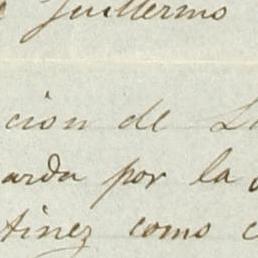 Guillermo
cion de
arda por la
tinez como